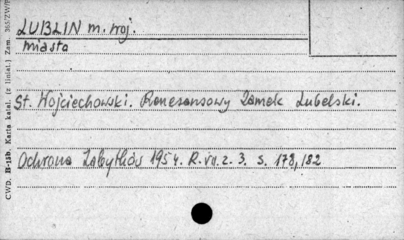 LUBLIN m. woj.
miasto
St. Wojciechowski. Renesansowy Zamek Lubelski.
Ochrona Zabytków 1954. R. VII. z. 3. s. 178, 182
CWD. B-11b. Karta katal. (z liniat.) Zam. 365/ZW/